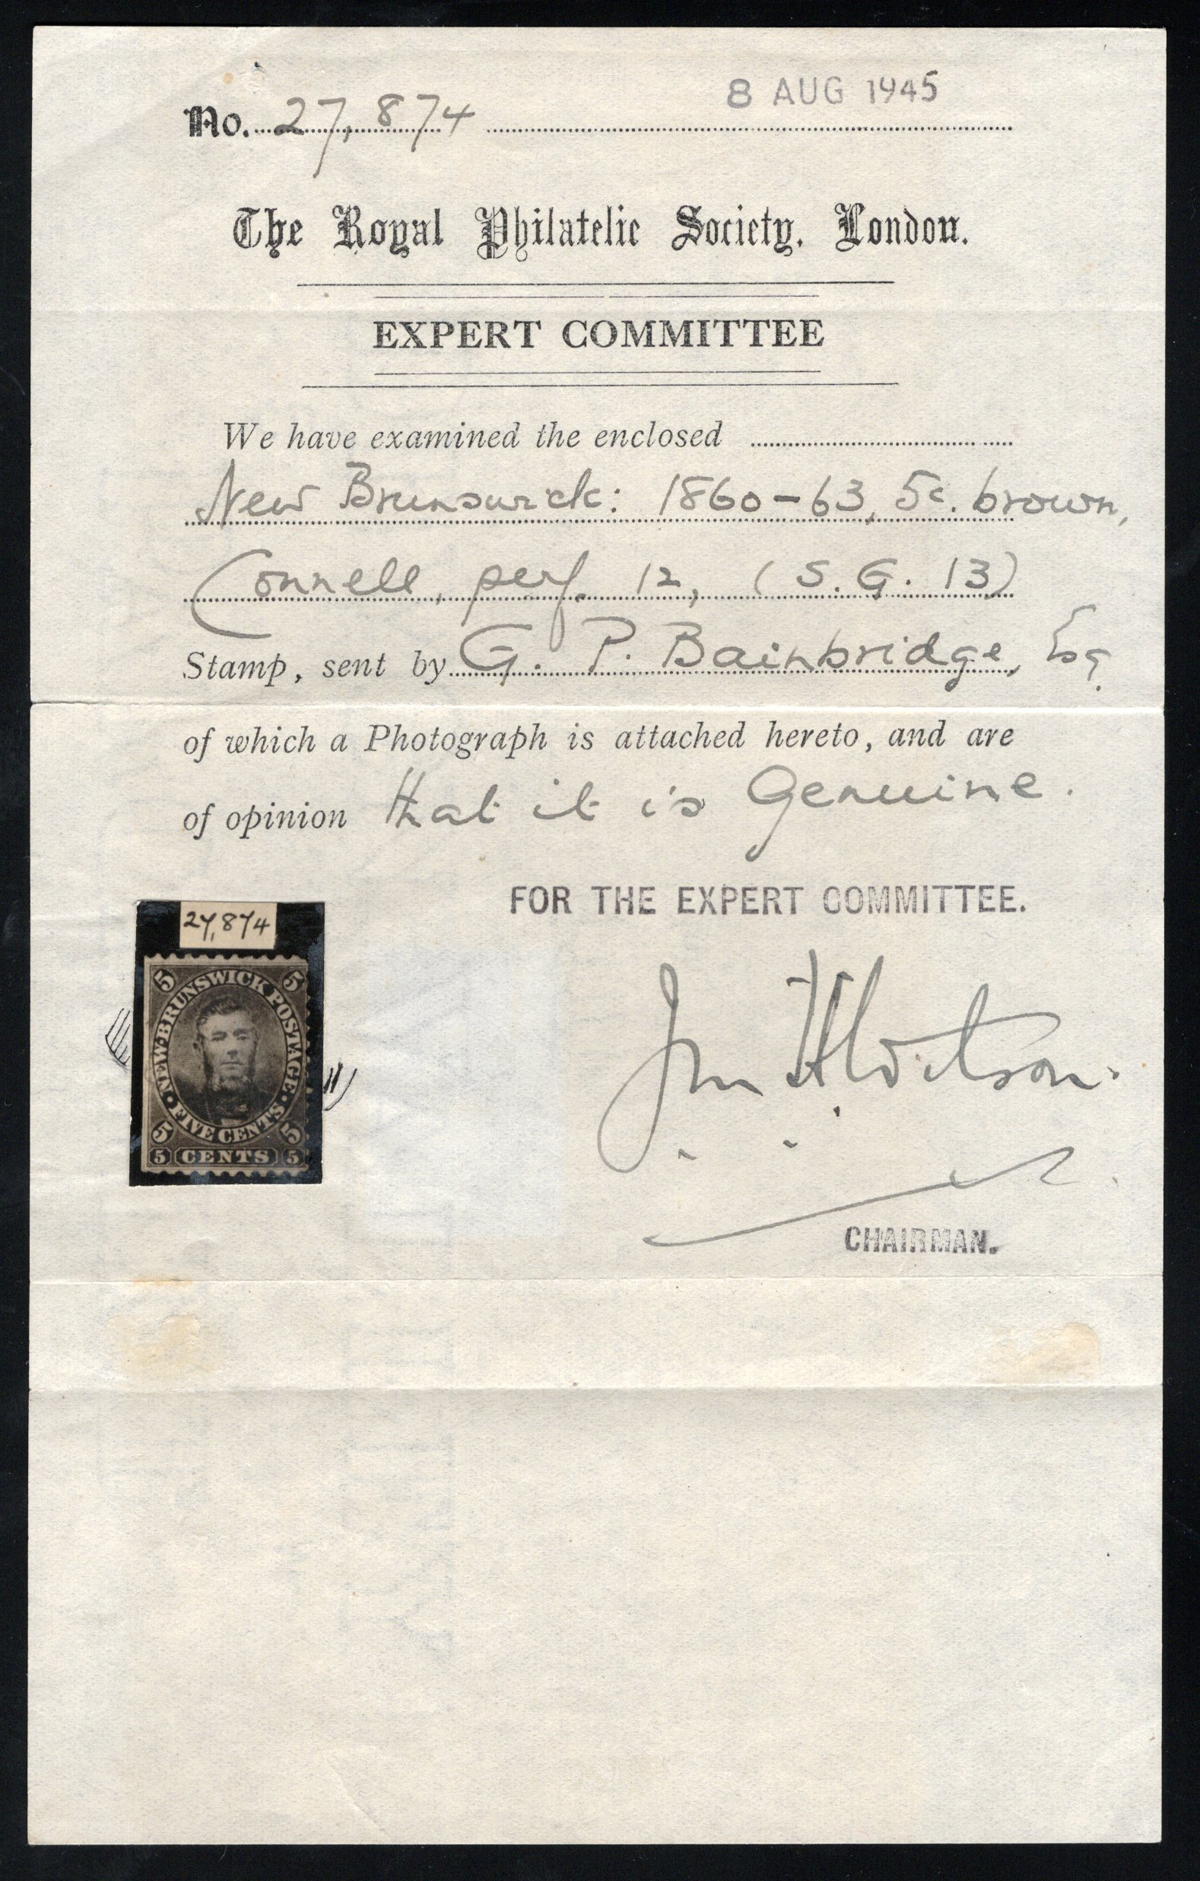 No. 27,874
8 AUG 1945
The Royal Philatelic Society, London.
EXPERT COMMITTEE
We have examined the enclosed
New Brunswick: 1860-63, 5c. brown,
Connell, perf. 12, (S.G. 13)
Stamp, sent by G. P. Bainbridge, Esq.
of which a Photograph is attached hereto, and are
of opinion that it is Genuine.
FOR THE EXPERT COMMITTEE.
27,874
5 5
NEW-BRUNSWICK POSTAGE
FIVE CENTS
5 5
5 CENTS 5
CHAIRMAN.